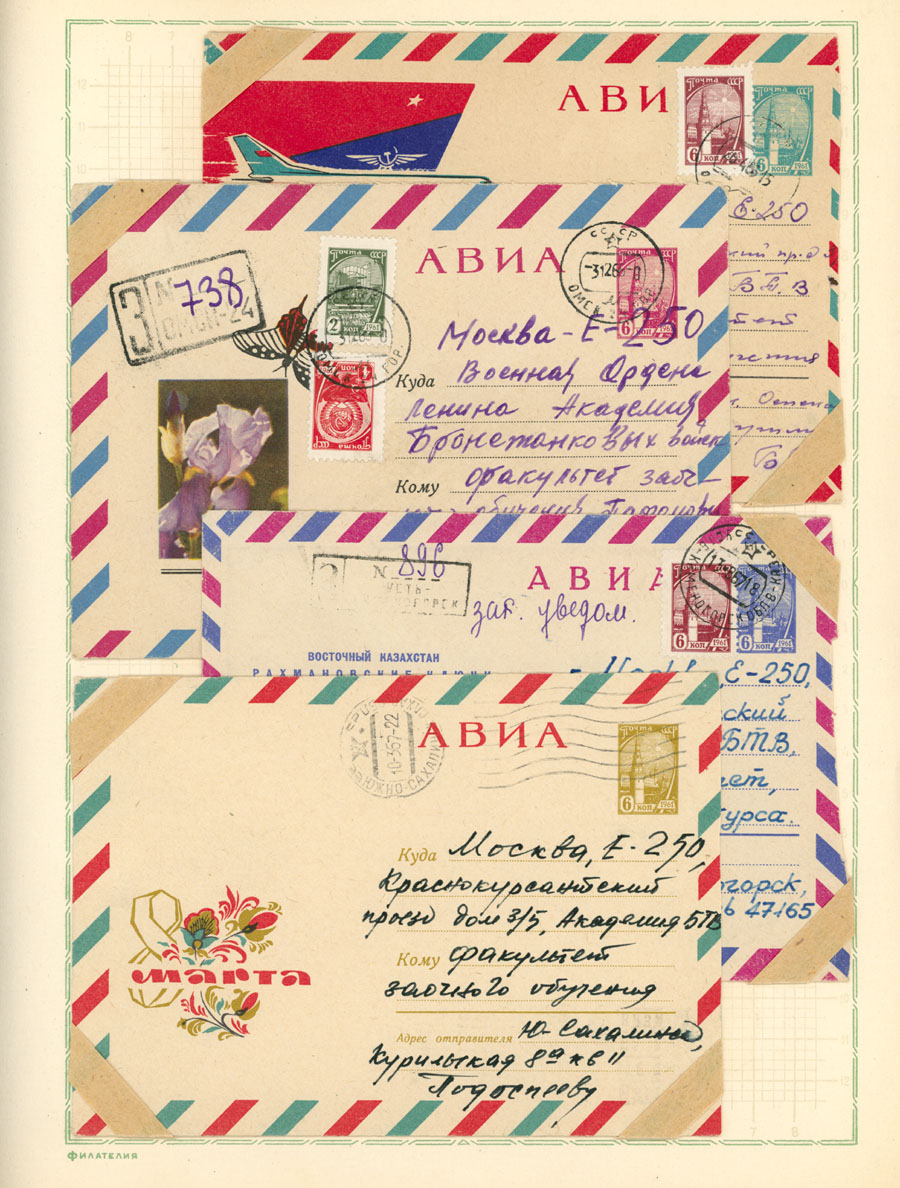 АВИ
Почта СССР
6 коп 1961
6 коп 1961
Е-250
БТВ
АВИА
З N 738
ОМСК-24
Почта СССР
2 коп 1961
СССР
-3126
ОМСК
6 коп
Москва-Е-250
Куда Военная Ордена
Ленина Академия
Бронетанковых войск
Кому факультет заоч-
АВИА
N 896
УСТЬ-
зак. уведом.
6 коп 1961
6 коп 1961
ВОСТОЧНЫЙ КАЗАХСТАН
РАХМАНОВСКИЕ КЛЮЧИ
Е-250,
ский
БТВ,
тет,
курса.
огорск,
47165
АВИА
10-367-22
ЮЖНО-САХАЛИН
6 коп 1961
Куда Москва, Е-250,
Краснокурсантский
проезд дом 3/5, Академия БТВ
Кому факультет
заочного обучения
8 марта
Адрес отправителя Ю-Сахалинск,
Курильская 8а кв 11
Подоспееву
ФИЛАТЕЛИЯ